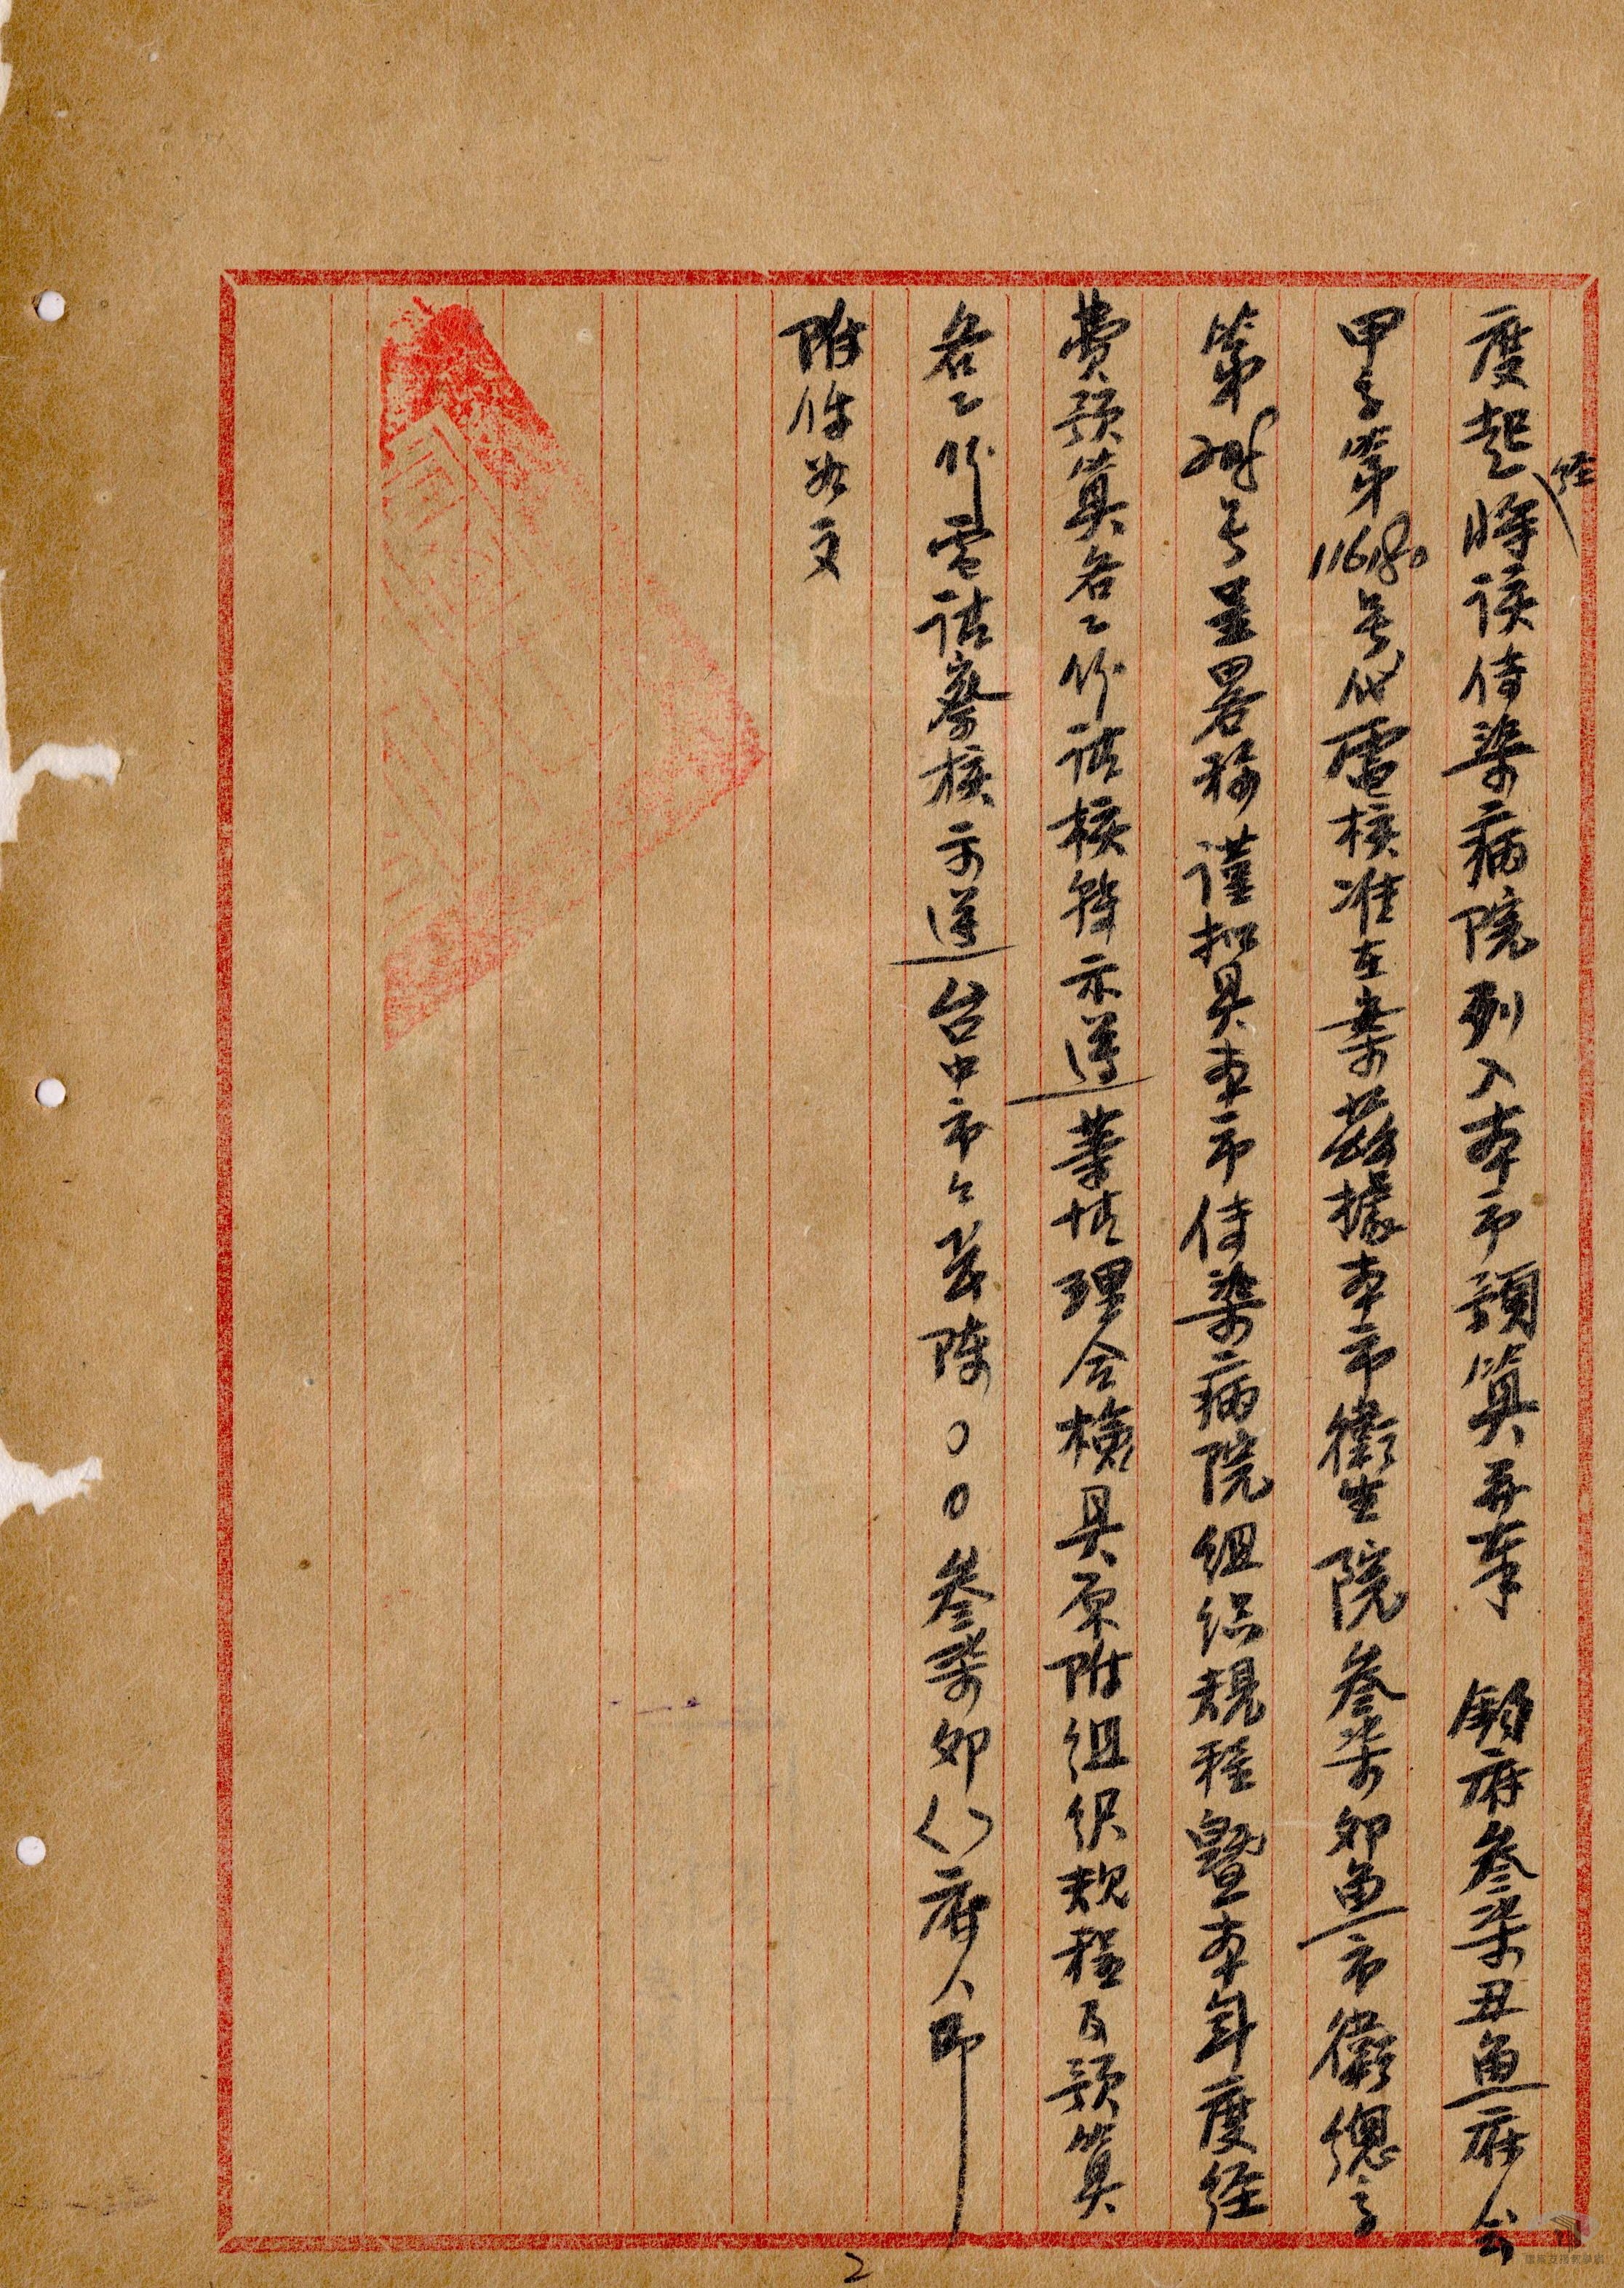 度起經將該傳染病院列入本市預算再奉 鈞府參柒丑魚府人會
甲字第11680号代電核准在案茲據本市衛生院參柒卯魚市衛總字
第号呈畧稱謹拟具本市傳染病院組织規程暨本年度經
費預算各二份請核轉示遵等情理合檢具原附組织規程及預算
各二份電請察核示遵台中市々長陳〇〇參柒卯〈〉府人印
附件如文
2